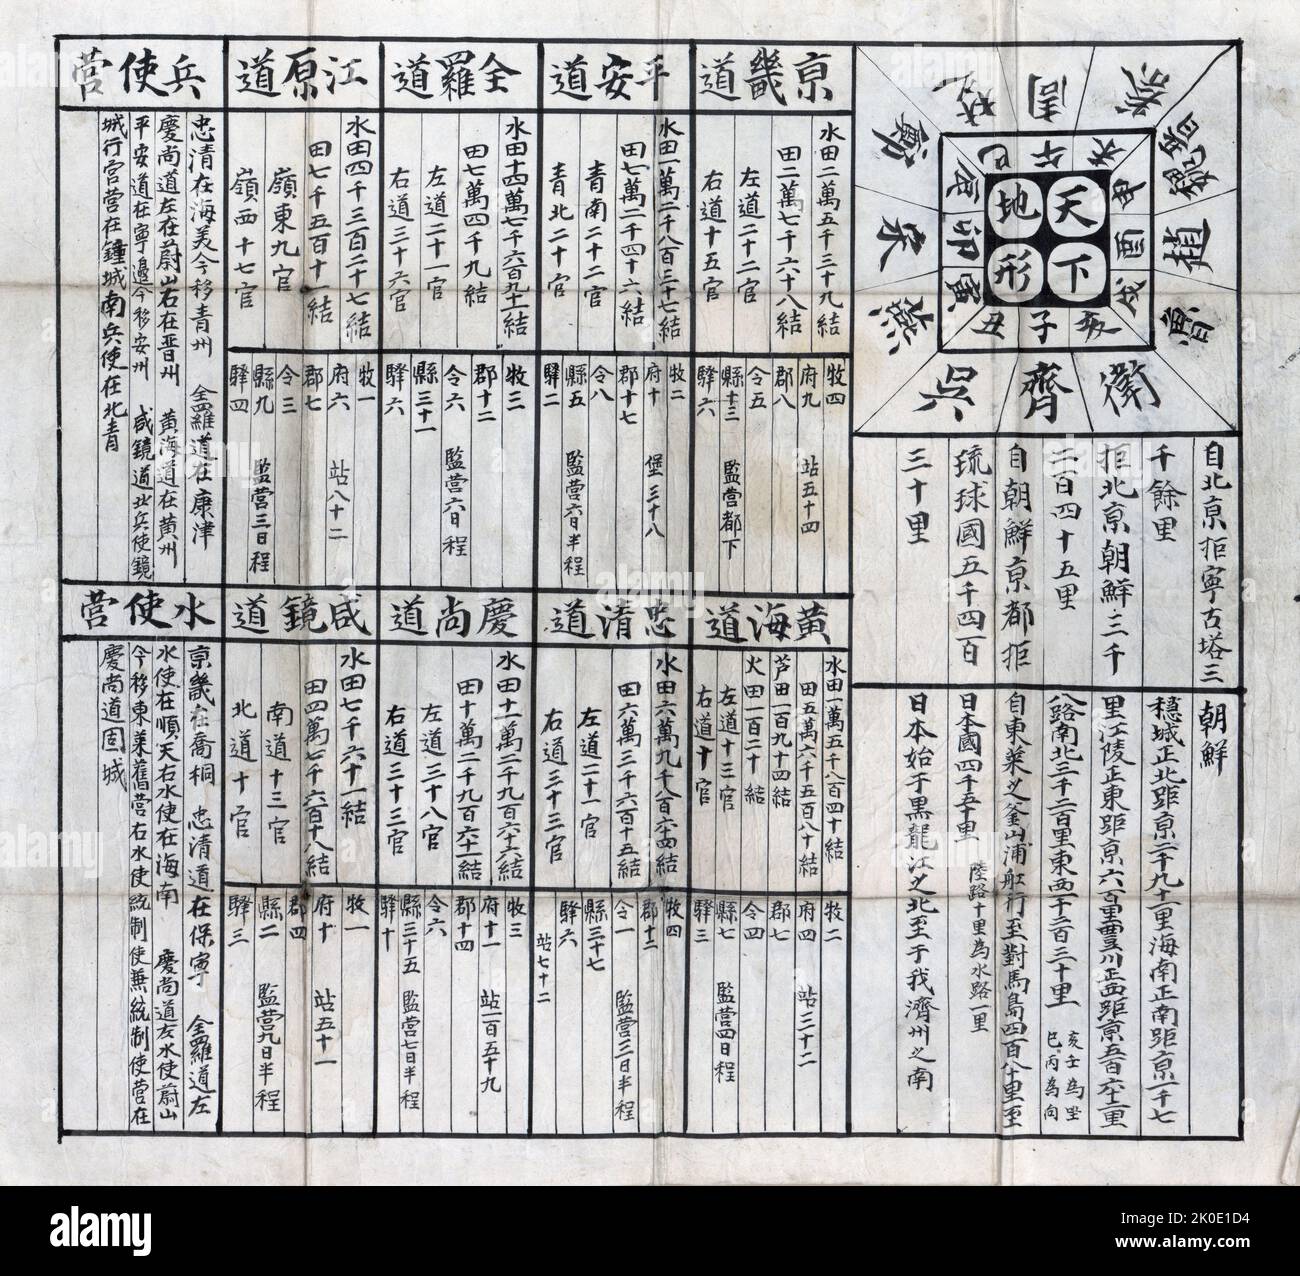 天下
地形
子
丑
寅
卯
辰
巳
午
未
申
酉
戌
亥
周
秦
魏晋
趙
魯
衛
齊
吳
燕
宋
鄭
楚
自北京距寧古塔三
千餘里
距北京朝鮮三千
二百四十五里
自朝鮮京都距
琉球國五千四百
三十里
朝鮮
穩城正北距京二千九十一里海南正南距京一千七
里江陵正東距京六百里豐川正西距京五百六十二里
八路南北三千二百里東西一千二百三十里
亥壬為坐
巳丙為向
自東萊之釜山浦舡行至對馬島四百八十里至
日本國四千五十里
陸路十里為水路一里
日本始于黑龍江之北至于我濟州之南
京畿道
水田二萬五千三十九結
田二萬七千六十八結
左道二十二官
右道十五官
牧四
府九
站五十四
郡八
令五
縣十三
監營都下
驛六
平安道
水田一萬二千八百三十七結
田七萬二千四十六結
青南二十二官
青北二十官
牧二
府十
堡三十八
郡十七
令八
縣五
監營六日半程
驛二
全羅道
水田十四萬七千六百九十一結
田七萬四千九結
左道二十一官
右道三十六官
牧三
郡十二
令六
監營六日程
縣三十一
驛六
江原道
水田四千三百二十七結
田七千五百十一結
嶺東九官
嶺西十七官
牧一
府六
站八十二
郡七
令三
縣九
監營三日程
驛四
兵使營
忠清在海美今移青州 全羅道在康津
慶尚道左在蔚山右在晋州 黃海道在黃州
平安道在寧邊今移安州 咸鏡道北兵使鏡
城行宮營在鍾城南兵使在北青
黃海道
水田一萬五千八百四十結
田五萬六千五百八十結
芦田一百九十四結
火田一百二十結
左道十三官
右道十官
牧二
府四
站三十二
郡七
令四
縣七
監營四日程
驛三
忠清道
水田六萬九千八百六十四結
田六萬三千六百十五結
左道二十一官
右道三十三官
牧四
郡十二
令一
監營三日半程
縣三十七
驛六
站七十二
慶尚道
水田十一萬二千九百六十六結
田十萬二千九百六十一結
左道三十八官
右道三十三官
牧三
府十一
站一百五十九
郡十四
令六
縣三十五
監營七日半程
驛十
咸鏡道
水田七千六十一結
田四萬七千六百十八結
南道十三官
北道十官
牧一
府十
站五十一
郡四
縣二
監營九日半程
驛三
水使營
京畿在喬桐 忠清道在保寧 全羅道左
水使在順天右水使在海南 慶尚道左水使蔚山
今移東萊舊營右水使統制使兼統制使營在
慶尚道固城
alamy
Image ID: 2K0E1D4
www.alamy.com